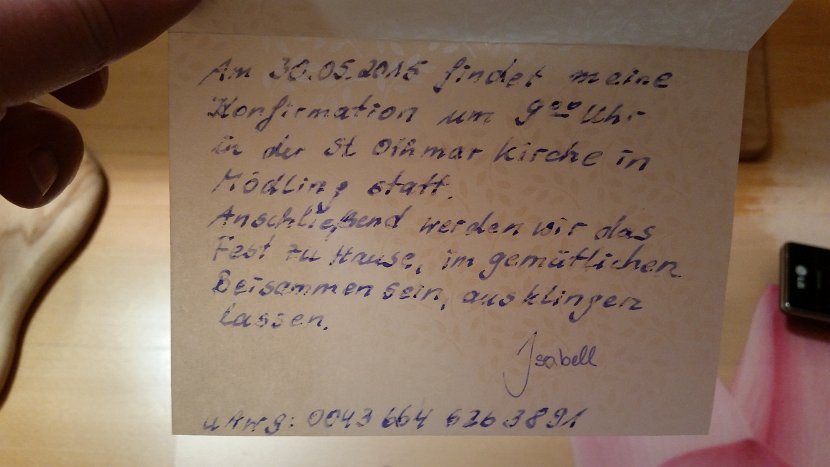 Am 30.05.2015 findet meine
Konfirmation um 9⁰⁰ Uhr
in der St Othmar Kirche in
Mödling statt.
Anschließend werden wir das
Fest zu Hause, im gemütlichen
Beisammen sein, ausklingen
lassen.
Isabell
uAwg: 0043 664 6363891
LG